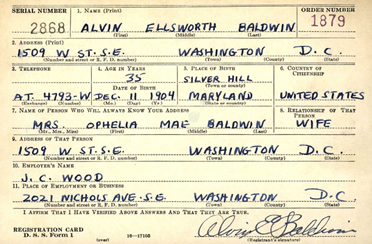 SERIAL NUMBER 1. NAME (Print) ORDER NUMBER
2868 ALVIN ELLSWORTH BALDWIN 1879
(First) (Middle) (Last)
2. ADDRESS (Print)
1509 W ST. S.E. WASHINGTON D.C.
(Number and street or R. F. D. number) (Town) (County) (State)
3. TELEPHONE 4. AGE IN YEARS 5. PLACE OF BIRTH 6. COUNTRY OF CITIZENSHIP
35 SILVER HILL
DATE OF BIRTH (Town or county)
AT. 4793-W DEC. 11 1904 MARYLAND UNITED STATES
(Exchange) (No.) (Mo.) (Day) (Yr.) (State or country)
7. NAME OF PERSON WHO WILL ALWAYS KNOW YOUR ADDRESS 8. RELATIONSHIP OF THAT PERSON
MRS. OPHELIA MAE BALDWIN WIFE
(Mr., Mrs., Miss) (First) (Middle) (Last)
9. ADDRESS OF THAT PERSON
1509 W ST. S.E. WASHINGTON D.C.
(Number and street or R. F. D. number) (Town) (County) (State)
10. EMPLOYER'S NAME
J. C. WOOD
11. PLACE OF EMPLOYMENT OR BUSINESS
2021 NICHOLS AVE. S.E. WASHINGTON D.C.
(Number and street or R. F. D. number) (Town) (County) (State)
I AFFIRM THAT I HAVE VERIFIED ABOVE ANSWERS AND THAT THEY ARE TRUE.
REGISTRATION CARD
D. S. S. Form 1 (over) 16-17105 Alvin E Baldwin
(Registrant's signature)